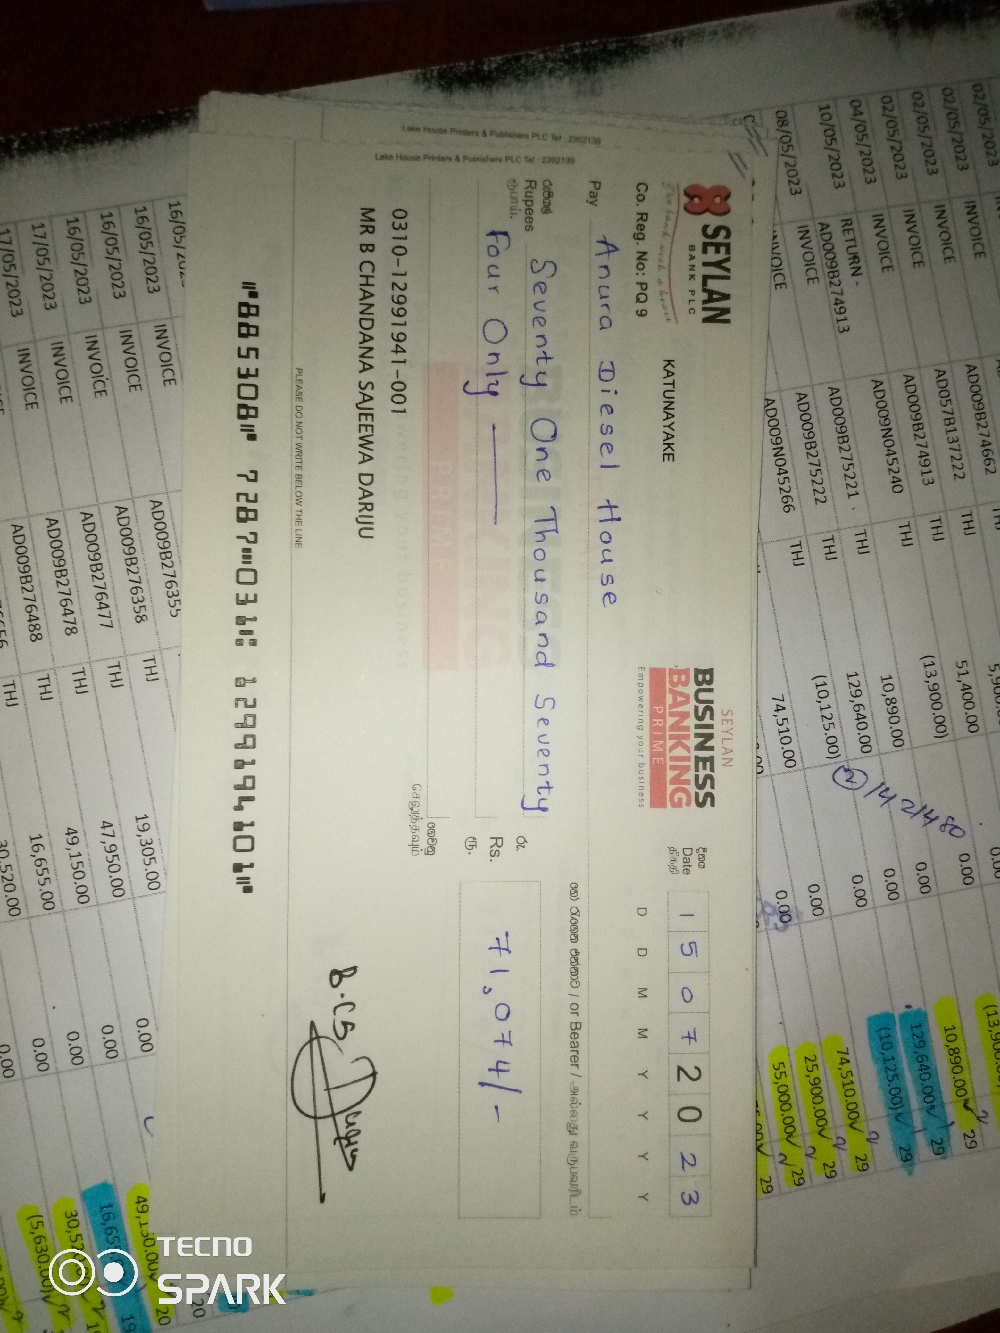 Lake House Printers & Publishers PLC Tel : 2302139
Lake House Printers & Publishers PLC Tel : 2302139
SEYLAN
BANK PLC
The bank with a heart
Co. Reg. No: PQ 9
KATUNAYAKE
SEYLAN
BUSINESS
BANKING
PRIME
Empowering your business
දිනය
Date
திகதி
1 5 0 7 2 0 2 3
D D M M Y Y Y Y
Pay Anura Diesel House
හෝ රැගෙන එන්නාට / or Bearer /
රුපියල්
Rupees Seventy One Thousand Seventy
ரூபாய்
Four Only
රු.
Rs.
ரூ.
71,074/-
ගෙවනු
செலுத்தவும்
0310-12991941-001
MR B CHANDANA SAJEEWA DARIJU
B.C.S
PLEASE DO NOT WRITE BELOW THE LINE
⑈885308⑈ 7287⑉031⑆ 1299194101⑈
02/05/2023
02/05/2023 INVOICE AD009B274662
02/05/2023 INVOICE AD057B137222 THJ 51,400.00 0.00 10,890.00 29
02/05/2023 INVOICE AD009B274913 THJ (13,900.00) 0.00 129,640.00 29
04/05/2023 INVOICE AD009N045240 THJ 10,890.00 0.00 (10,125.00) 29
10/05/2023 RETURN - AD009B274913 AD009B275221 THJ 129,640.00 0.00 74,510.00 29
INVOICE AD009B275222 THJ (10,125.00) 0.00 25,900.00 29
08/05/2023 INVOICE AD009N045266 THJ 74,510.00 0.00 55,000.00 29
1421480
16/05/2023 INVOICE AD009B276355 THJ 19,305.00 0.00 49,150.00 20
16/05/2023 INVOICE AD009B276358 THJ 47,950.00 0.00
16/05/2023 INVOICE AD009B276477 THJ 49,150.00 0.00
17/05/2023 INVOICE AD009B276478 THJ 16,655.00 0.00 (5,630.00)
17/05/2023 INVOICE AD009B276488 THJ 30,520.00 0.00
TECNO
SPARK